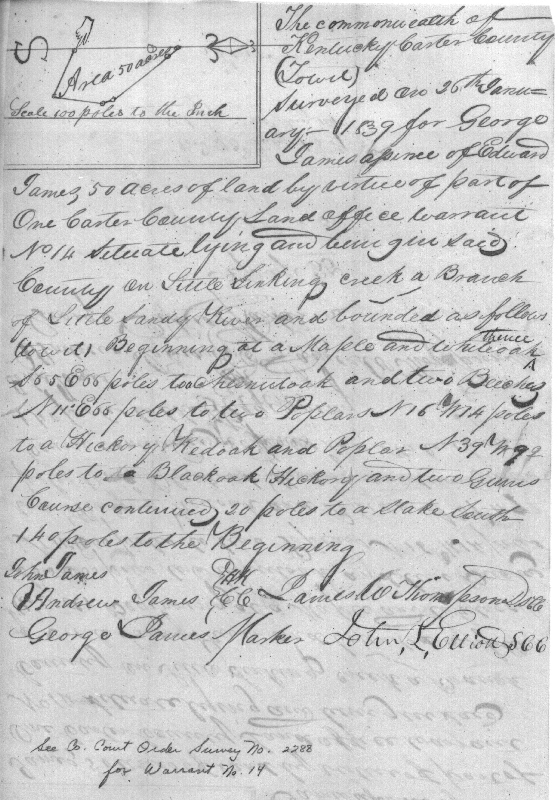 S
Area 50 acres
Scale 100 poles to the Inch
The commonwealth of
Kentucky Carter County
(Towit)
Surveyed on 26th Janu=
ary 1839 for George
James a
of Edward
James, 50 acres of land by virtue of part of
One Carter County Land office warrant
No 14 Situate lying and being in said
County on Little Sinking creek a Branch
of Little Sandy River and bounded as follows
(towit) Beginning at a Maple and whiteoak thence
S 65 E 66 poles to a Chesnutoak and two Beeches
N 11 E 66 poles to two Poplars N 16 W 14 poles
to a Hickory Redoak and Poplar N 39 W 92
poles to a Blackoak Hickory and two Gums
Course continued 20 poles to a Stake South
140 poles to the Beginning
John James
Andrew James CC James W Thompson DSCC
George James Marker John L. Elliott SCC
See Co. Court Order Survey No. 2288
for Warrant No. 14